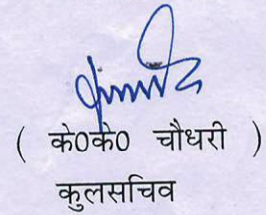 ( के0के0 चौधरी )
कुलसचिव